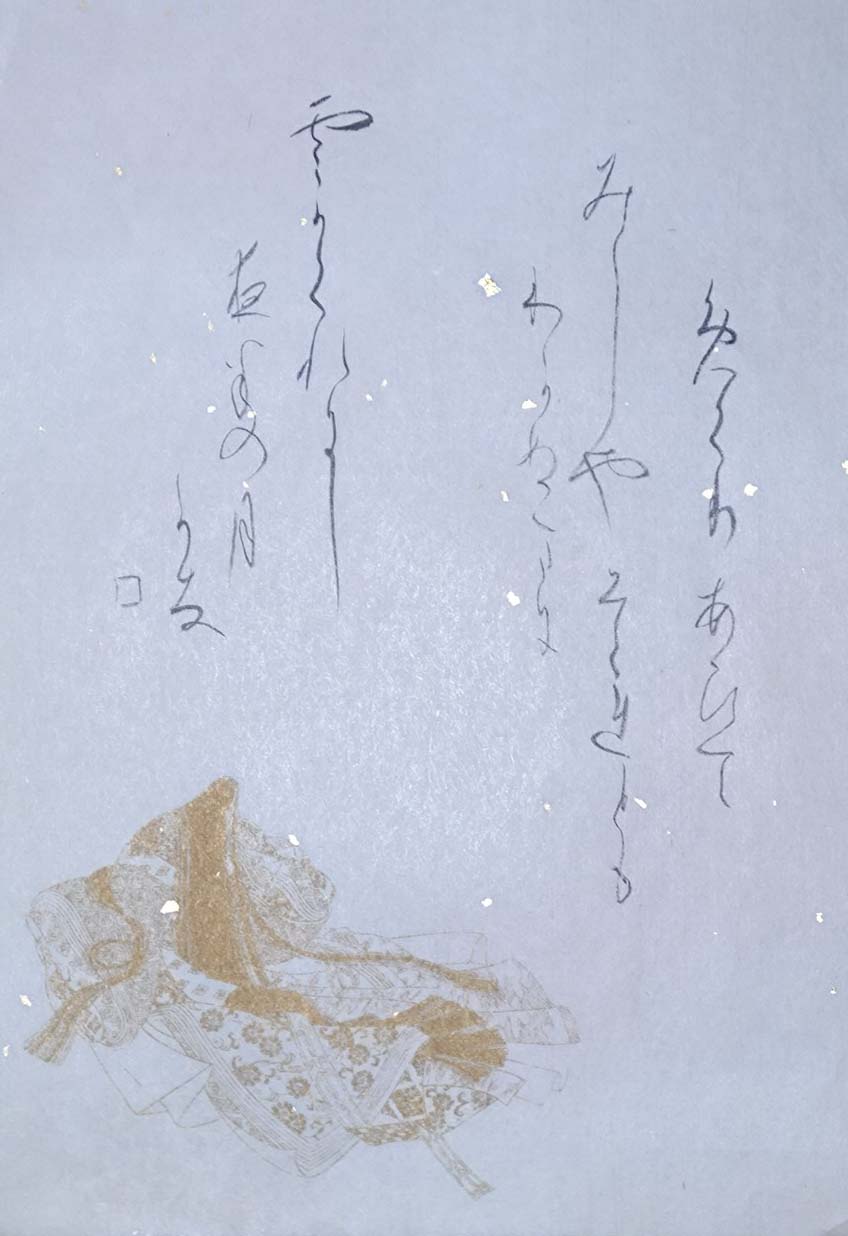 めくりあひて
みしやそれとも
わかぬまに
雲かくれにし
夜半の月
かな